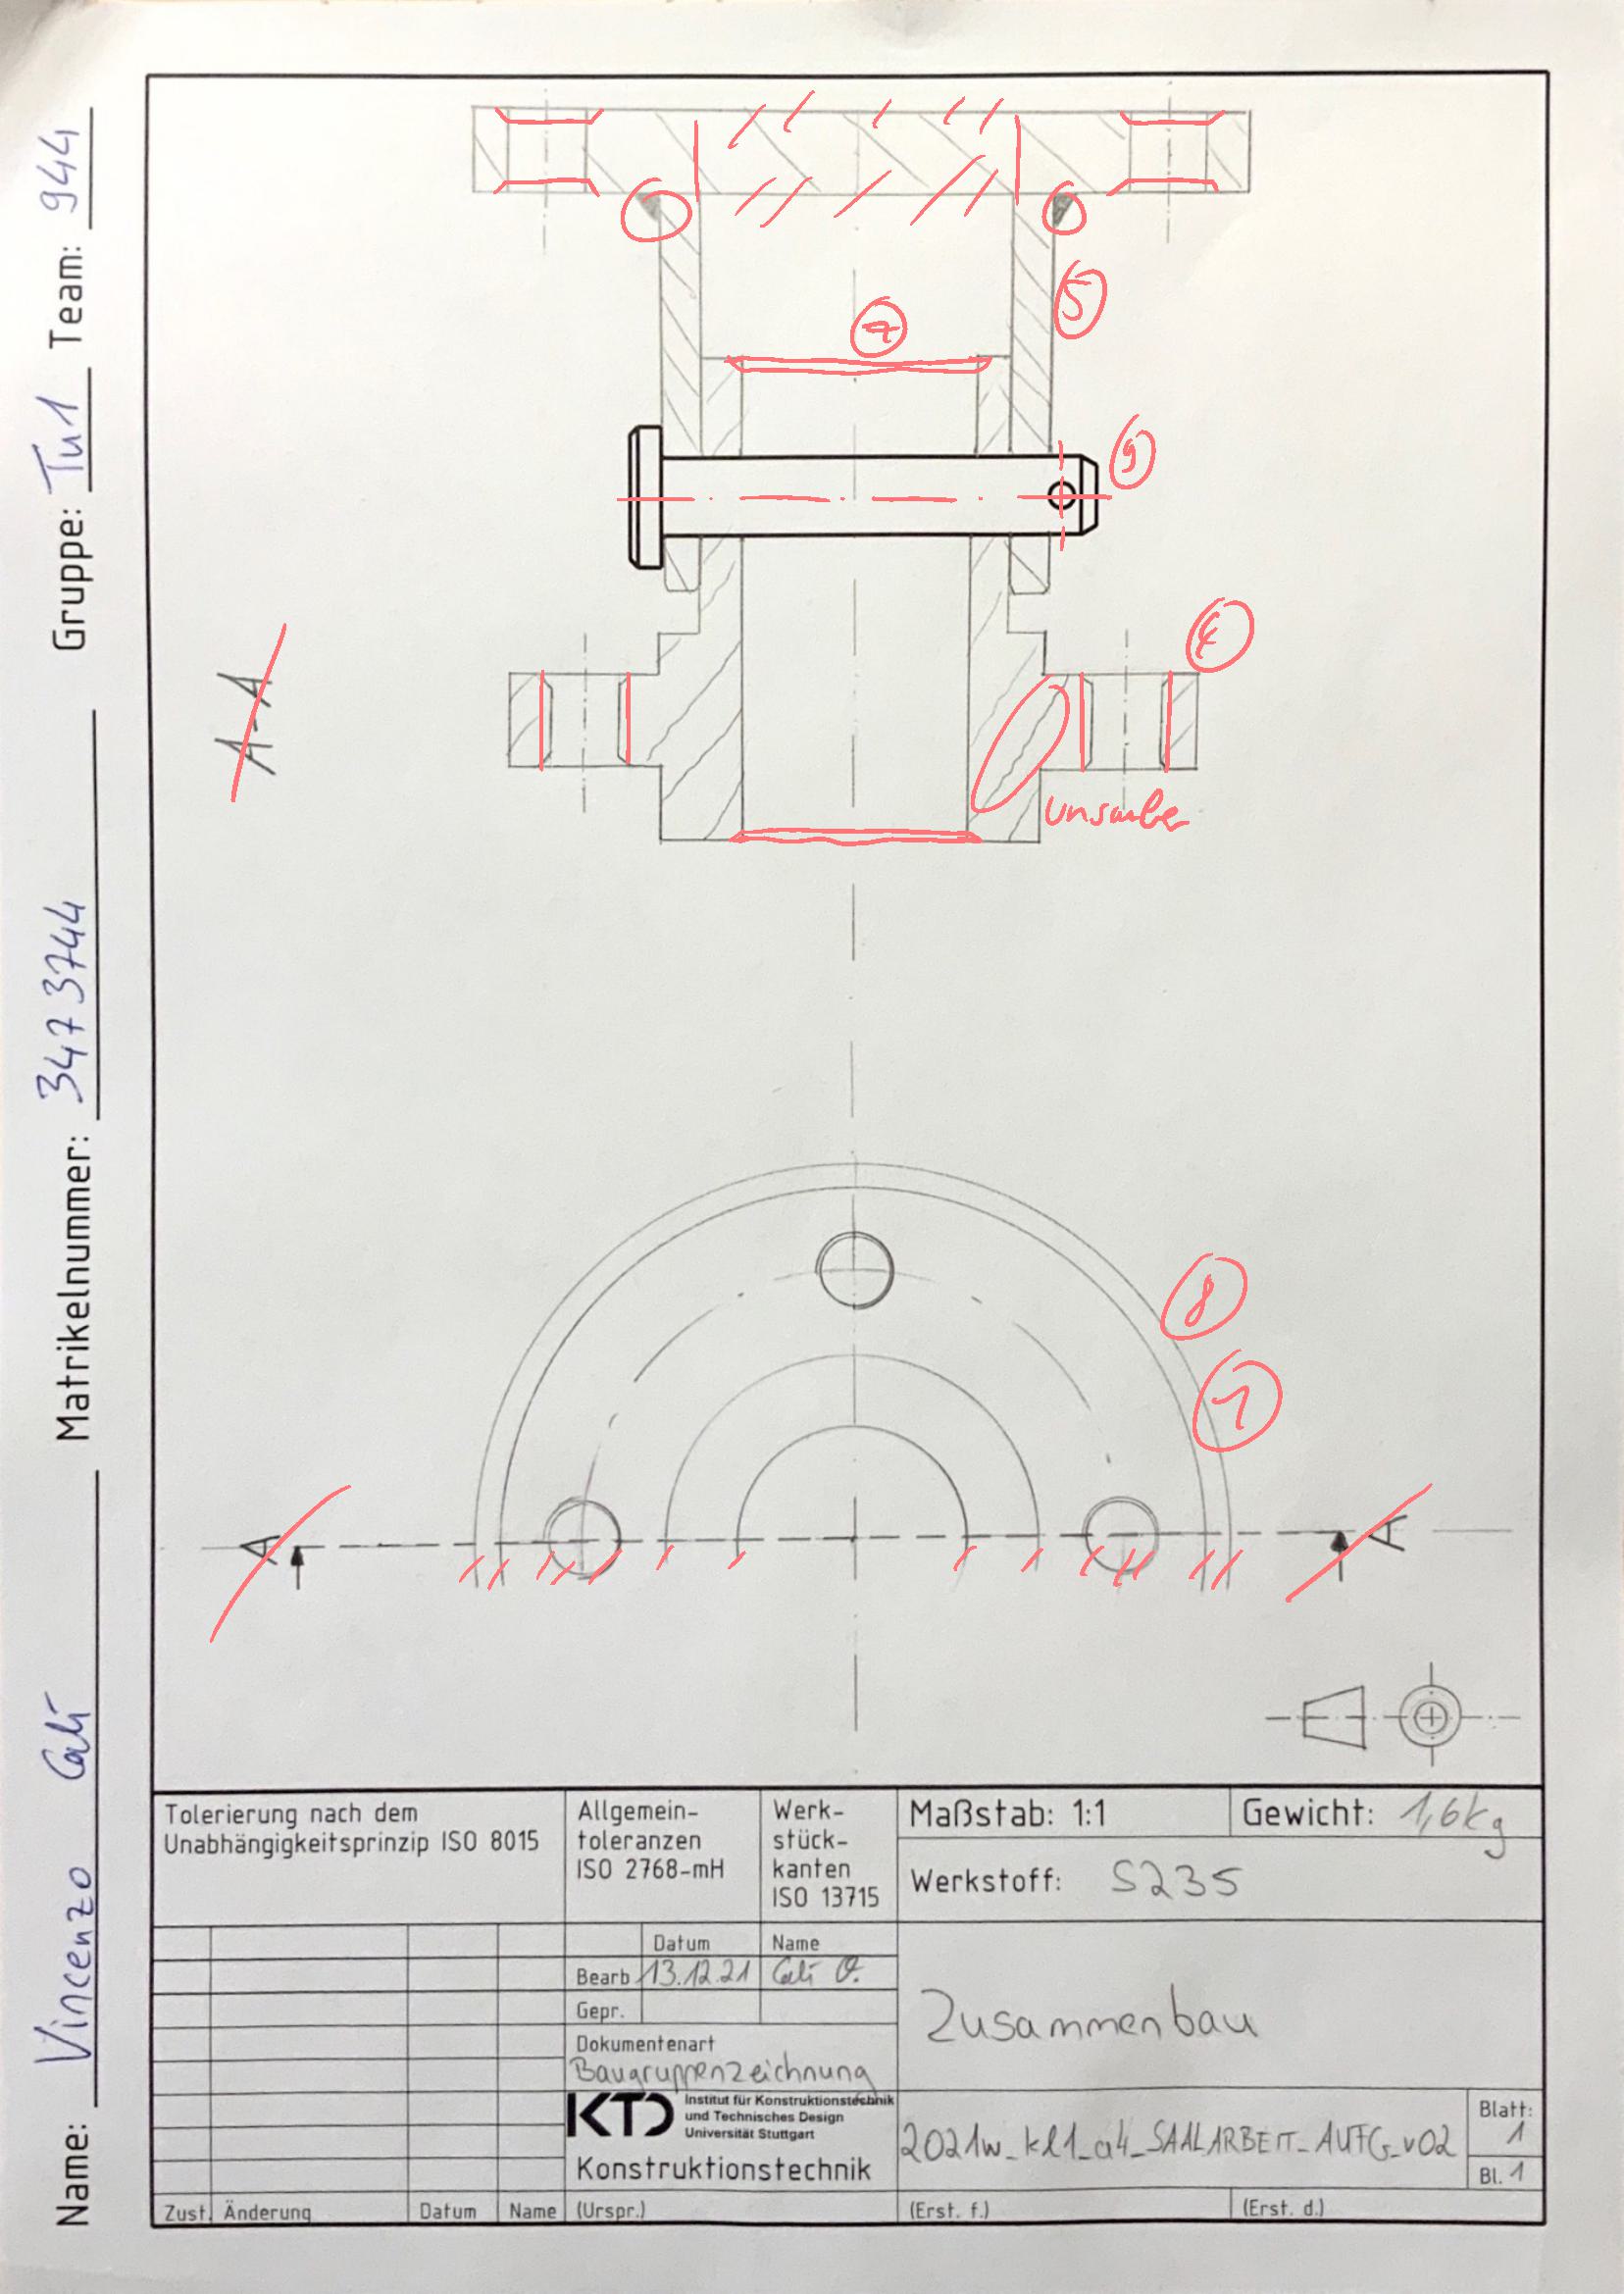 Name: Vincenzo Calì Matrikelnummer: 3473744 Gruppe: Tu1 Team: 944
5
9
A-A
unsauber
8
7
A
A
Tolerierung nach dem
Unabhängigkeitsprinzip ISO 8015
Allgemein-
toleranzen
ISO 2768-mH
Werk-
stück-
kanten
ISO 13715
Maßstab: 1:1
Gewicht: 1,6kg
Werkstoff: S235
Datum
Name
Bearb 13.12.21 Calì V.
Gepr.
Dokumentenart
Baugruppenzeichnung
Zusammenbau
KTD
Institut für Konstruktionstechnik
und Technisches Design
Universität Stuttgart
Konstruktionstechnik
2021w_kl1_a4_SAALARBEIT_AUFG_v02
Blatt:
1
Bl. 1
Zust. Änderung Datum Name (Urspr.) (Erst. f.) (Erst. d.)